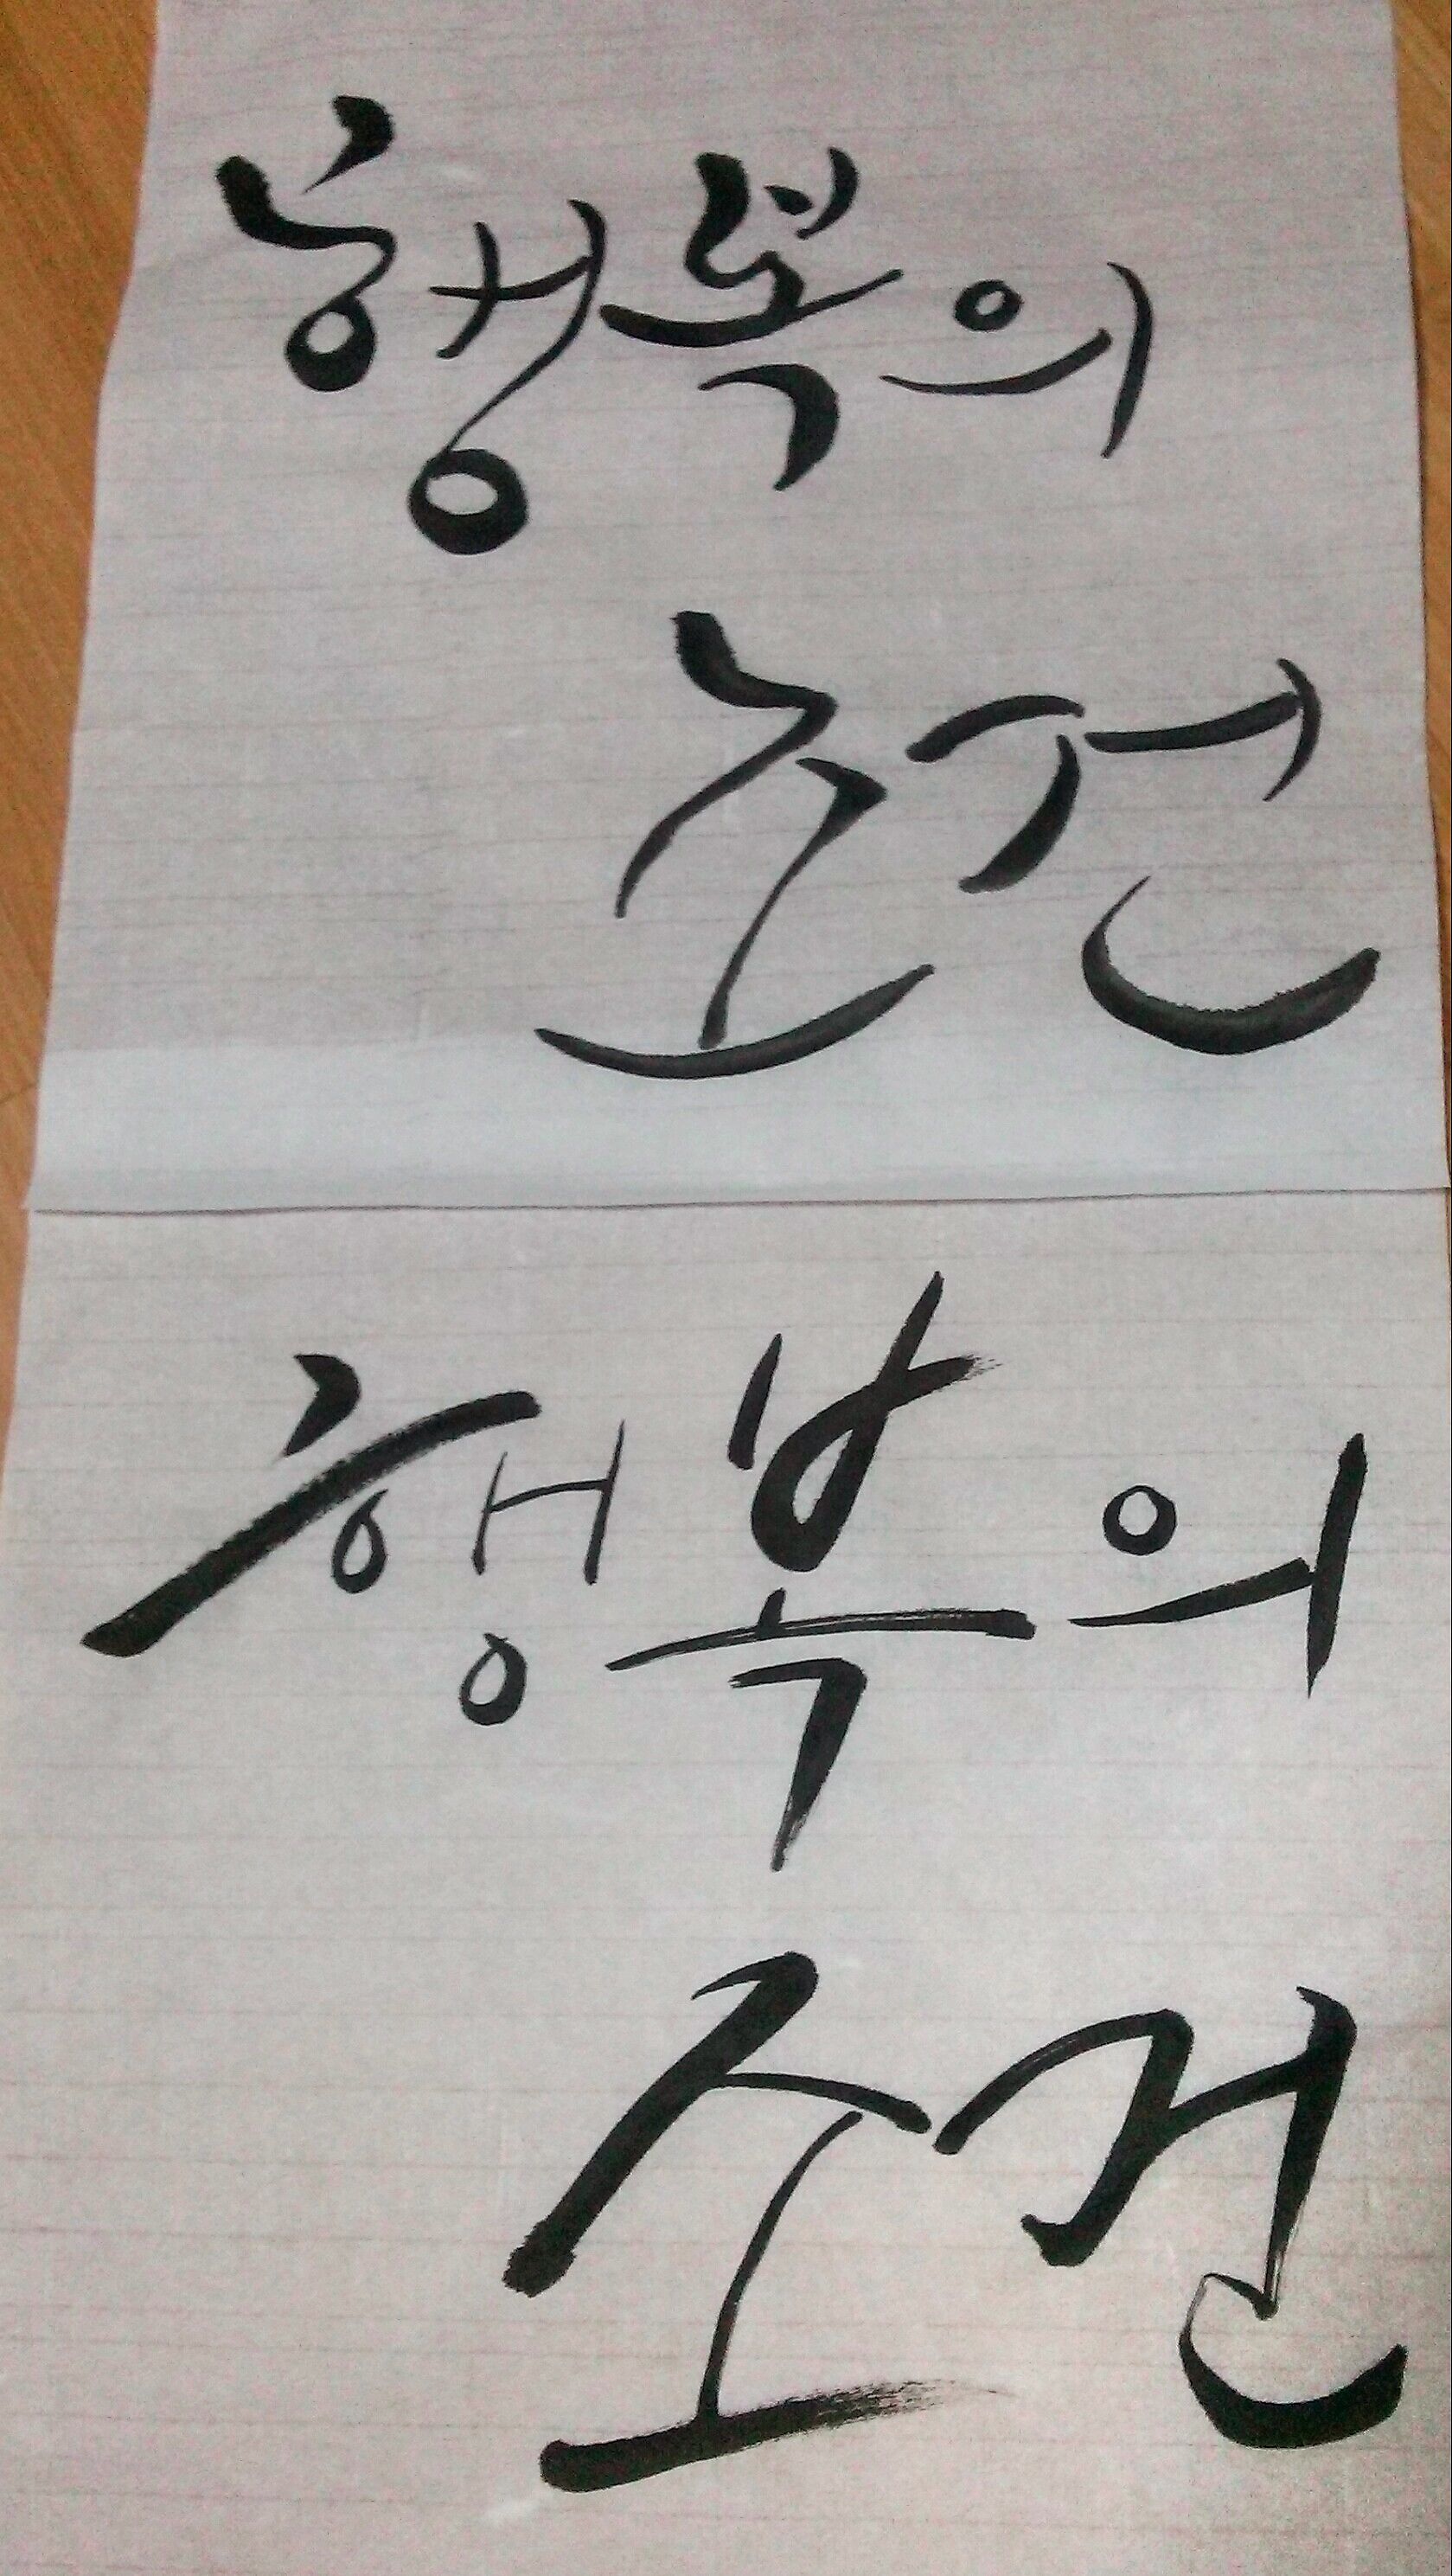 행복의
조건
행복의
조건